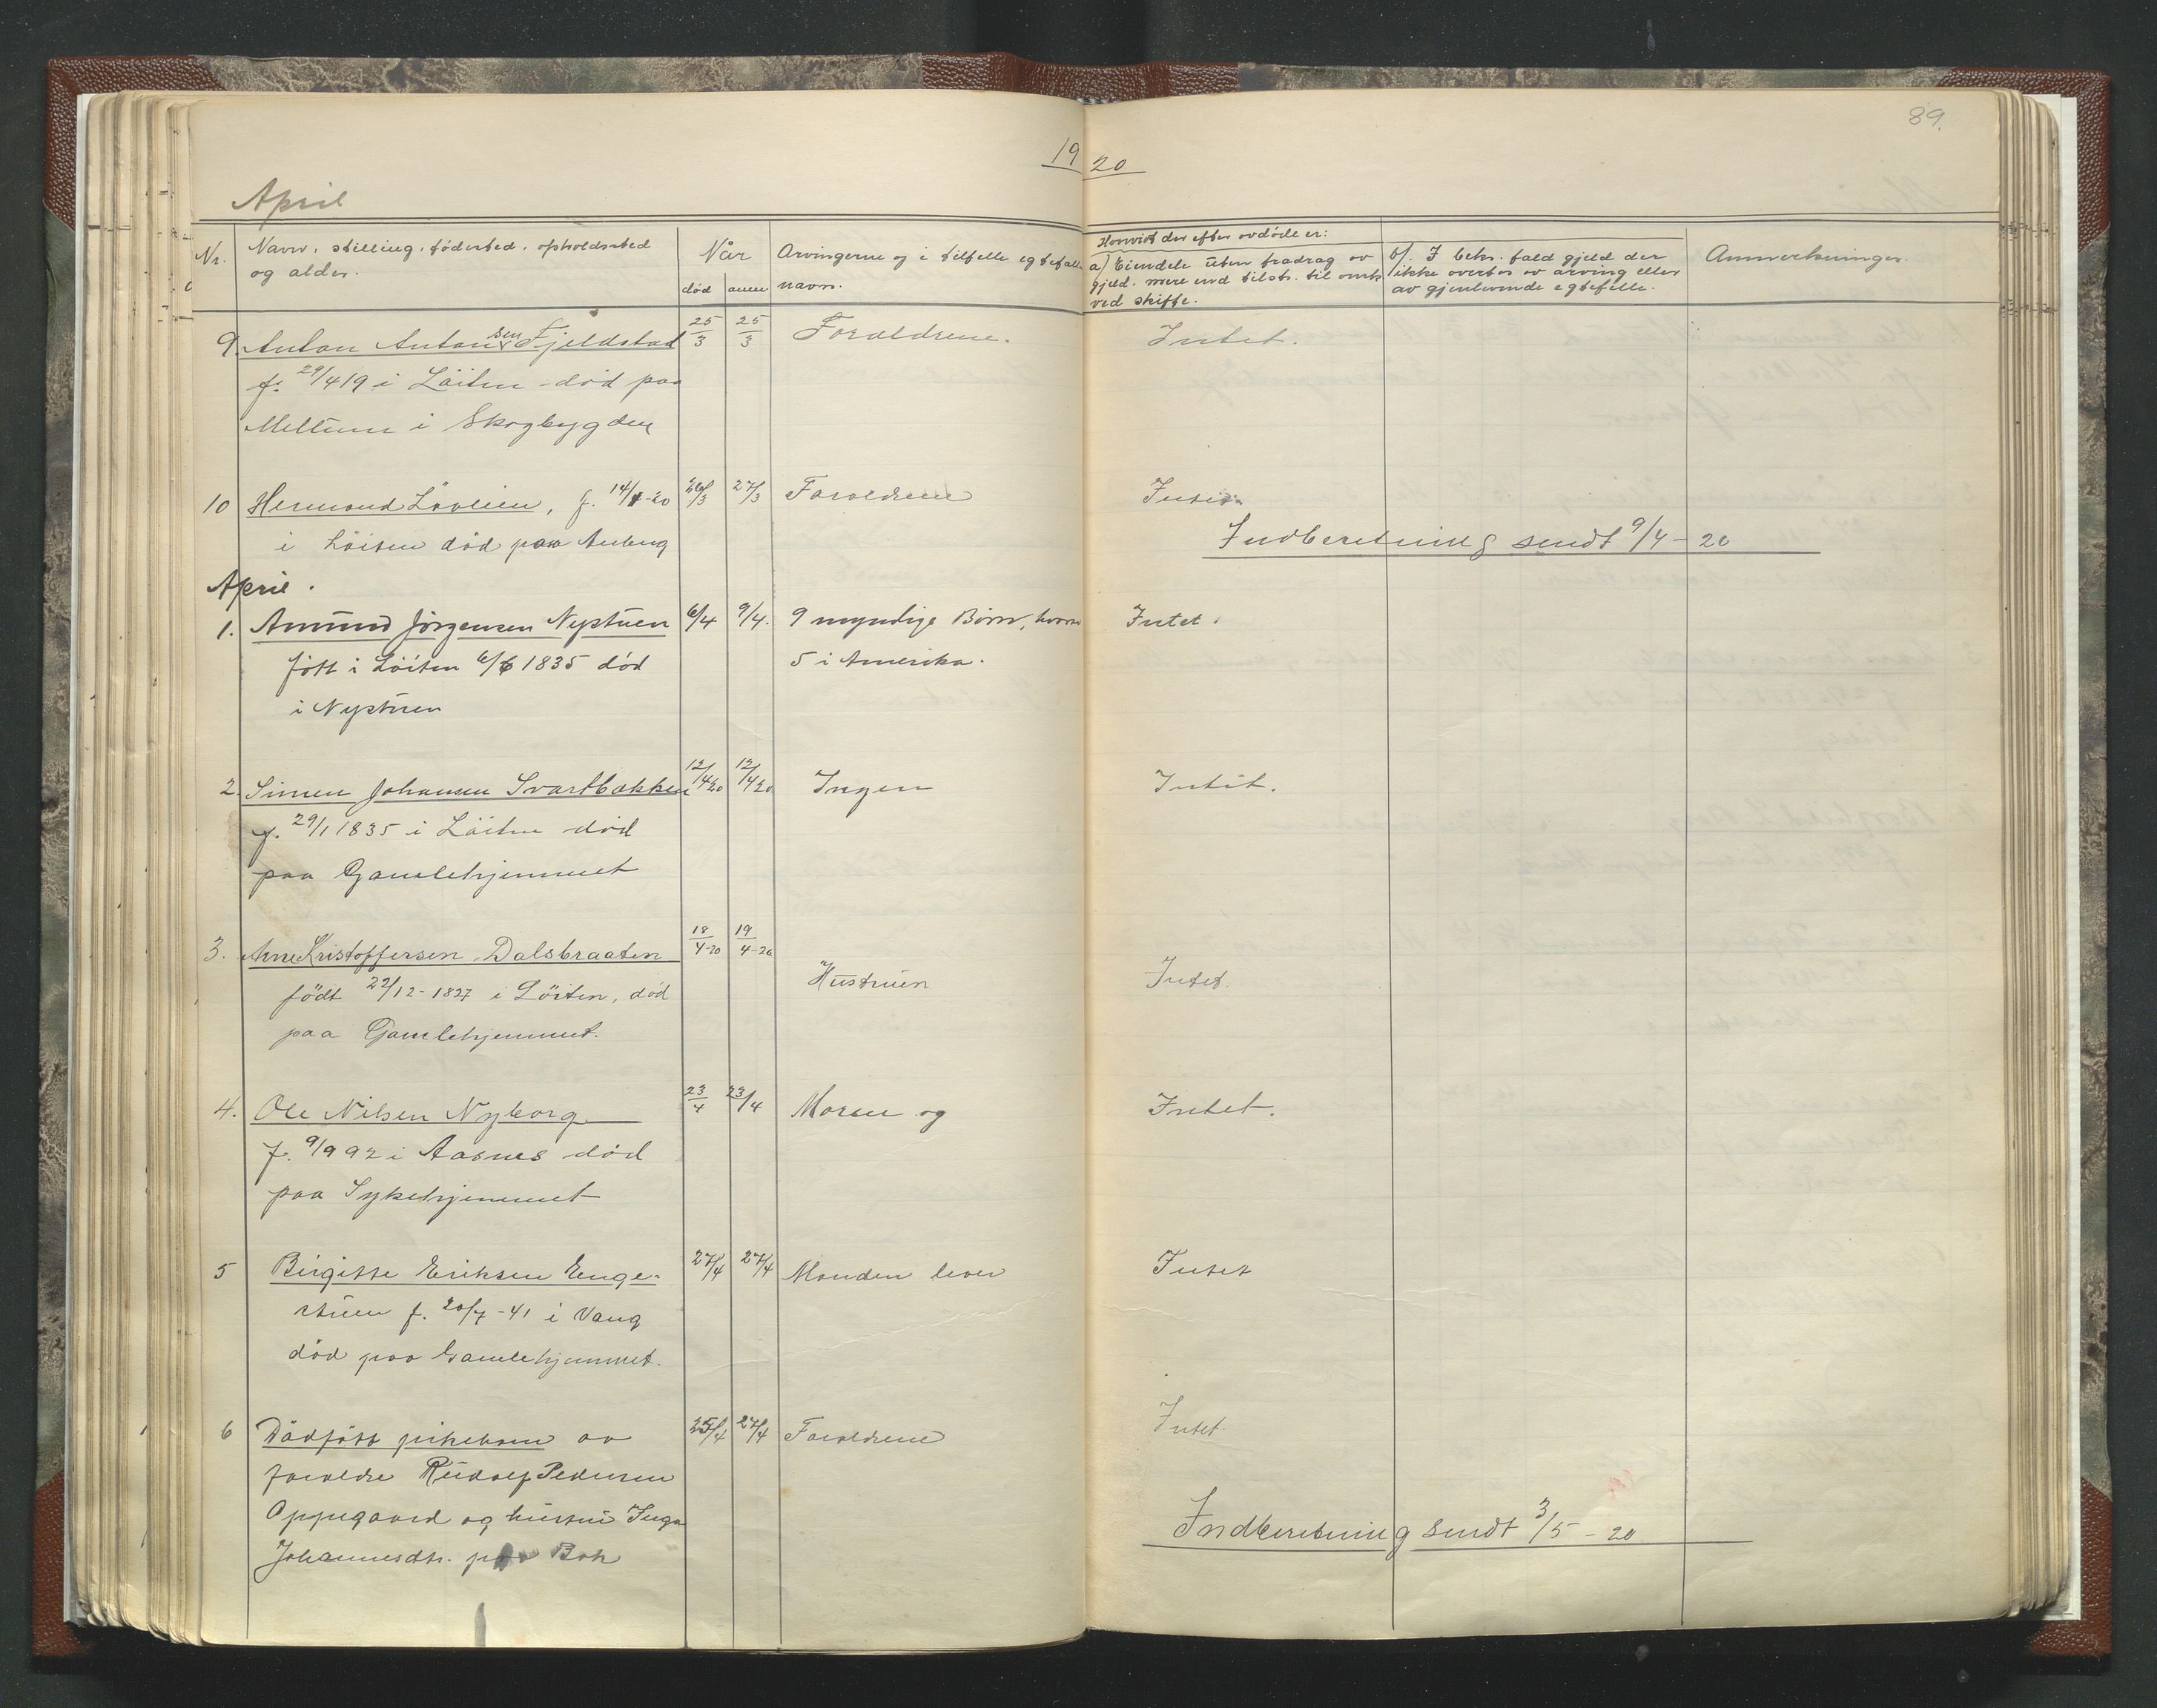 89.
1920
April
Nr. Navn, stilling, födested, opholdssted og alder. Når död anm Arvingerne og i tilfelle egtefelle navn. Hvorvidt der efter avdöde er: a) Eiendele uten fradrag av gjeld. mere end tilstr. til omk ved skifte. b/. I bekr. fald gjeld der ikke overtas av arving eller av gjenlevende egtefelle. Anmerkninger.
9. Anton Antonsen Fjeldstad 25/3 25/3 Forældrene. Intet.
f. 29/4 19 i Löiten död paa
Meltum i Skogbygden
10 Hermond Lövlien, f. 14/1-20 26/3 27/3 Forældrene Intet.
i Löiten död paa Anberg Indberetning sendt 9/4-20
April.
1. Amund Jörgensen Nystuen 6/4 9/4. 9 myndige Börn, hvorav Intet.
fött i Löiten 6/6 1835 död 5 i Amerika.
i Nystuen
2. Simen Johansen Svartbækken 12/4 20 12/4 20 Ingen Intet.
f. 29/1 1835 i Löiten död
paa Gamlehjemmet
3. Arne Kristoffersen Dalsbraaten 18/4-20 19/4-20
Hustruen Intet.
födt 22/12-1827 i Löiten, död
paa Gamlehjemmet.
4. Ole Nilsen Nyborg 23/4 23/4 Moren og Intet.
f. 9/9 92 i Aasnes död
paa Sykehjemmet
5 Birgitte Eriksen Enge- 27/4 27/4 Manden lever Intet
stuen f. 20/7-41 i Vang
död paa Gamlehjemmet.
6 Dödfött pikebarn av 25/4 27/4 Forældrene Intet.
forældre Rudolf Pedersen
Oppegaard og hustru Inga
Johannesdtr. paa Boh
Indberetning sendt 3/5-20